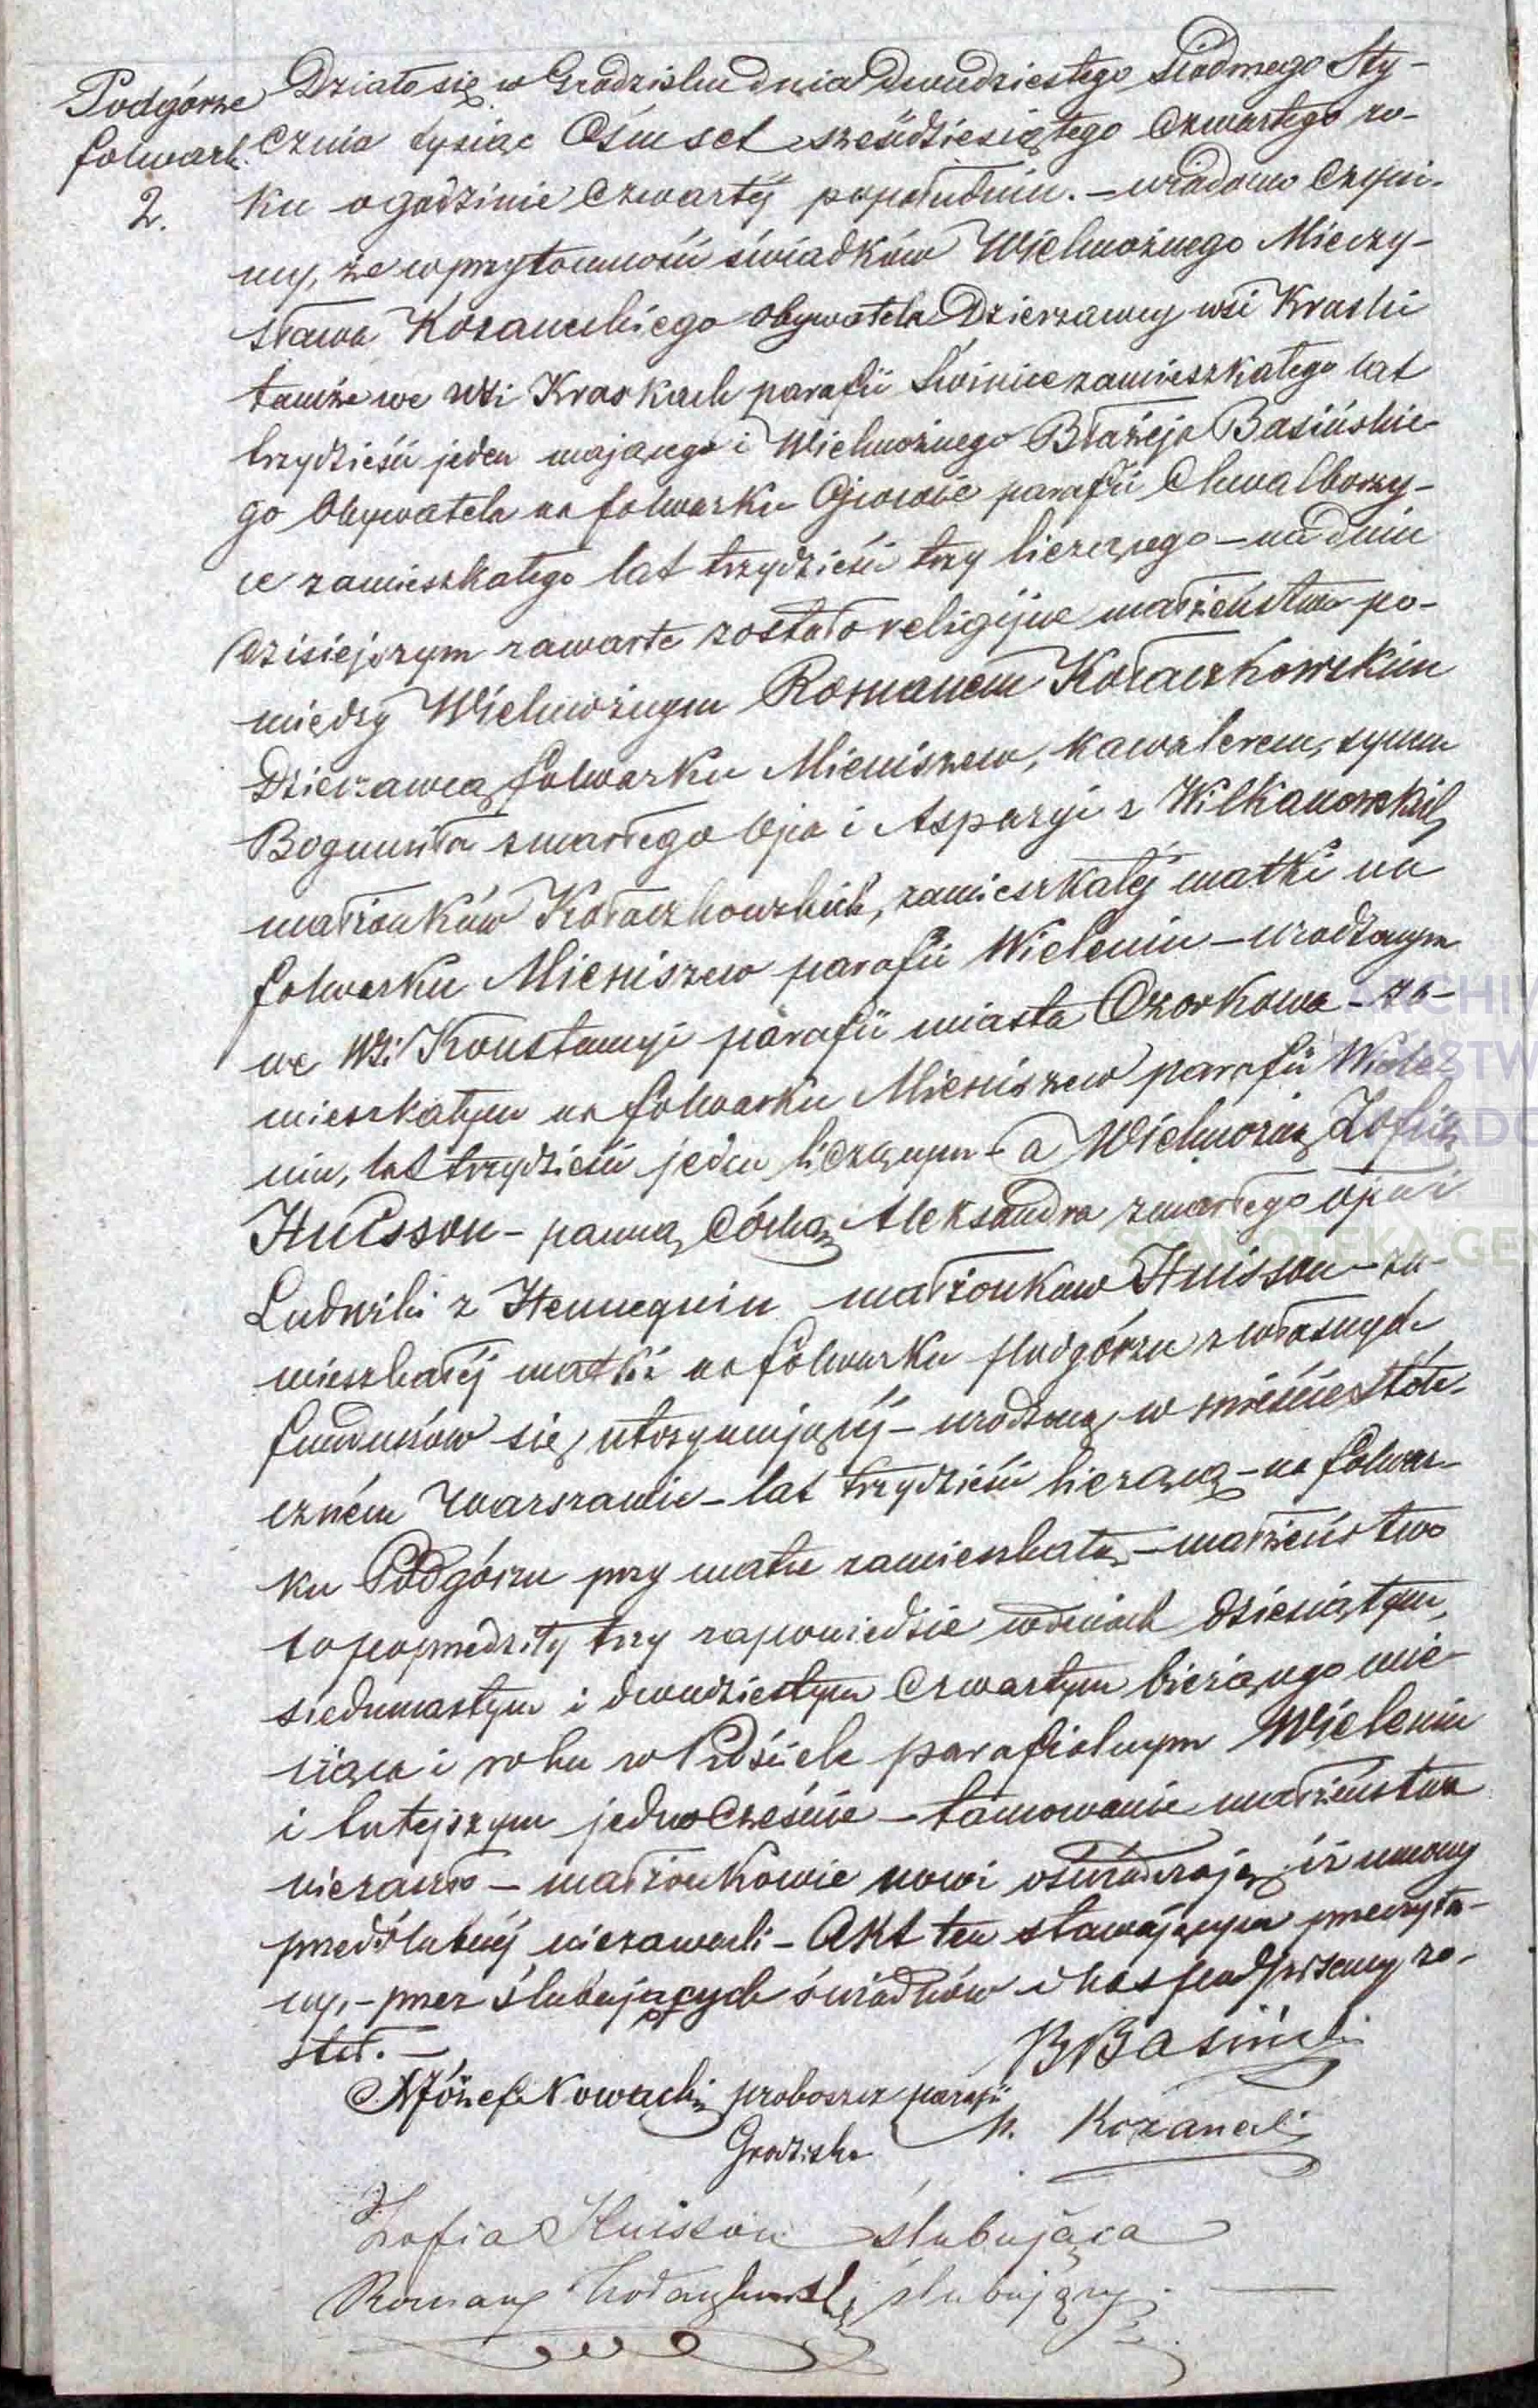 Podgórze
folwark.
2.
Działo się w Grodzisku dnia dwudziestego siódmego Sty-
cznia tysiąc Ośmset sześćdziesiątego Czwartego ro-
ku o godzinie Czwartéj popołudniu. – wiadomo Czyni-
my, że w przytomności świadków Wielmożnego Mieczy-
sława Kozaneckiego obywatela Dzierżawcy wsi Kraski
tamże we wsi Kraskach parafii Świnice zamieszkałego lat
trzydzieści jeden mającego i Wielmożnego Błażeja Basińskie-
go Obywatela na folwarku parafii Chwalborzy-
ce zamieszkałego lat trzydzieści trzy liczącego – na dniu
dzisiejszym zawarte zostało religijne małżeństwo po-
między Wielmożnym Romanem Kołaczkowskim
Dzierżawcą folwarku Mieniszew, kawalerem, synem
Bogumiła zmarłego Ojca i Aspazyi z Wilkanowskich
małżonków Kołaczkowskich, zamieszkałéj matki na
folwarku Mieniszew parafii Wielenin – urodzonym
we wsi Konstancyi parafii miasta Ozorkowa – za-
mieszkałym na folwarku Mieniszew parafii Wiele-
nin, lat trzydzieści jeden liczącym – a Wielmożną Zofią
Huisson – panną, Córką Aleksandra zmarłego ojca i
Ludwiki z Hennequin małżonków Huisson – za-
mieszkałéj matki na folwarku Podgórzu z własnych
funduszów się utrzymującéj – urodzoną w mieście Stołe-
czném Warszawie – lat trzydzieści liczącą – na folwar-
ku Podgórzu przy matce zamieszkałą, – małżeństwo
to poprzedziły trzy zapowiedzie w dniach dziesiątym,
siedmnastym i dwudziestym Czwartym bieżącego mie-
siąca i roku w Kościele parafialnym Wielenin
i tutejszym jednocześnie – tamowanie małżeństwa
niezaszło – małżonkowie nowi oświadczają, iż umowy
przedślubnéj niezawarli – Akt ten stawającym przeczyta-
ny, – przez ślubujących świadków i nas podpisany zo-
stał. –
BBasiński
X Józef Nowacki proboszcz parafii
Grodziska
M. Kozanecki
Zofia Huisson ślubująca
Roman Kołaczkowski ślubujący.
ARCHIW
PAŃSTW
SKANOTEKA GEN